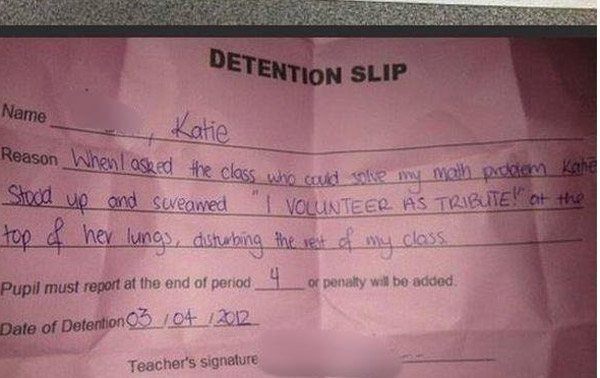 DETENTION SLIP
Name , Katie
Reason When I asked the class who could solve my math problem Katie
Stood up and screamed "I VOLUNTEER AS TRIBUTE!" at the
top of her lungs, disturbing the rest of my class.
Pupil must report at the end of period 4 or penalty will be added.
Date of Detention 03 / 04 / 2012
Teacher's signature